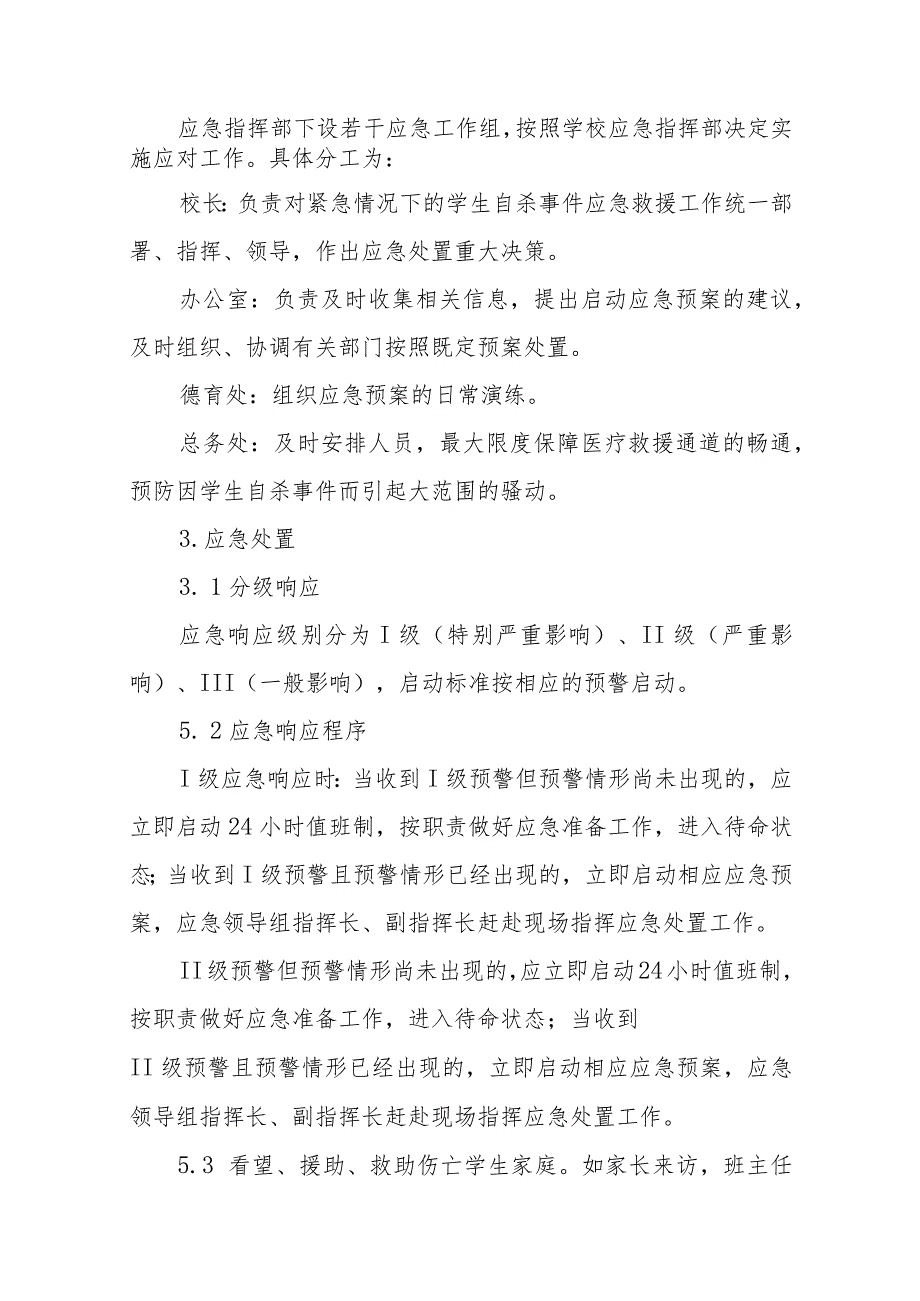 应急指挥部下设若干应急工作组，按照学校应急指挥部决定实
施应对工作。具体分工为：
校长：负责对紧急情况下的学生自杀事件应急救援工作统一部
署、指挥、领导，作出应急处置重大决策。
办公室：负责及时收集相关信息，提出启动应急预案的建议，
及时组织、协调有关部门按照既定预案处置。
德育处：组织应急预案的日常演练。
总务处：及时安排人员，最大限度保障医疗救援通道的畅通，
预防因学生自杀事件而引起大范围的骚动。
3.应急处置
3. 1分级响应
应急响应级别分为 I 级（特别严重影响）、II 级（严重影
响）、III（一般影响），启动标准按相应的预警启动。
5. 2应急响应程序
I级应急响应时：当收到 I 级预警但预警情形尚未出现的，应
立即启动 24 小时值班制，按职责做好应急准备工作，进入待命状
态；当收到 I 级预警且预警情形已经出现的，立即启动相应应急预
案，应急领导组指挥长、副指挥长赶赴现场指挥应急处置工作。
II级预警但预警情形尚未出现的，应立即启动24小时值班制，
按职责做好应急准备工作，进入待命状态；当收到
II 级预警且预警情形已经出现的，立即启动相应应急预案，应急
领导组指挥长、副指挥长赶赴现场指挥应急处置工作。
5.3 看望、援助、救助伤亡学生家庭。如家长来访，班主任